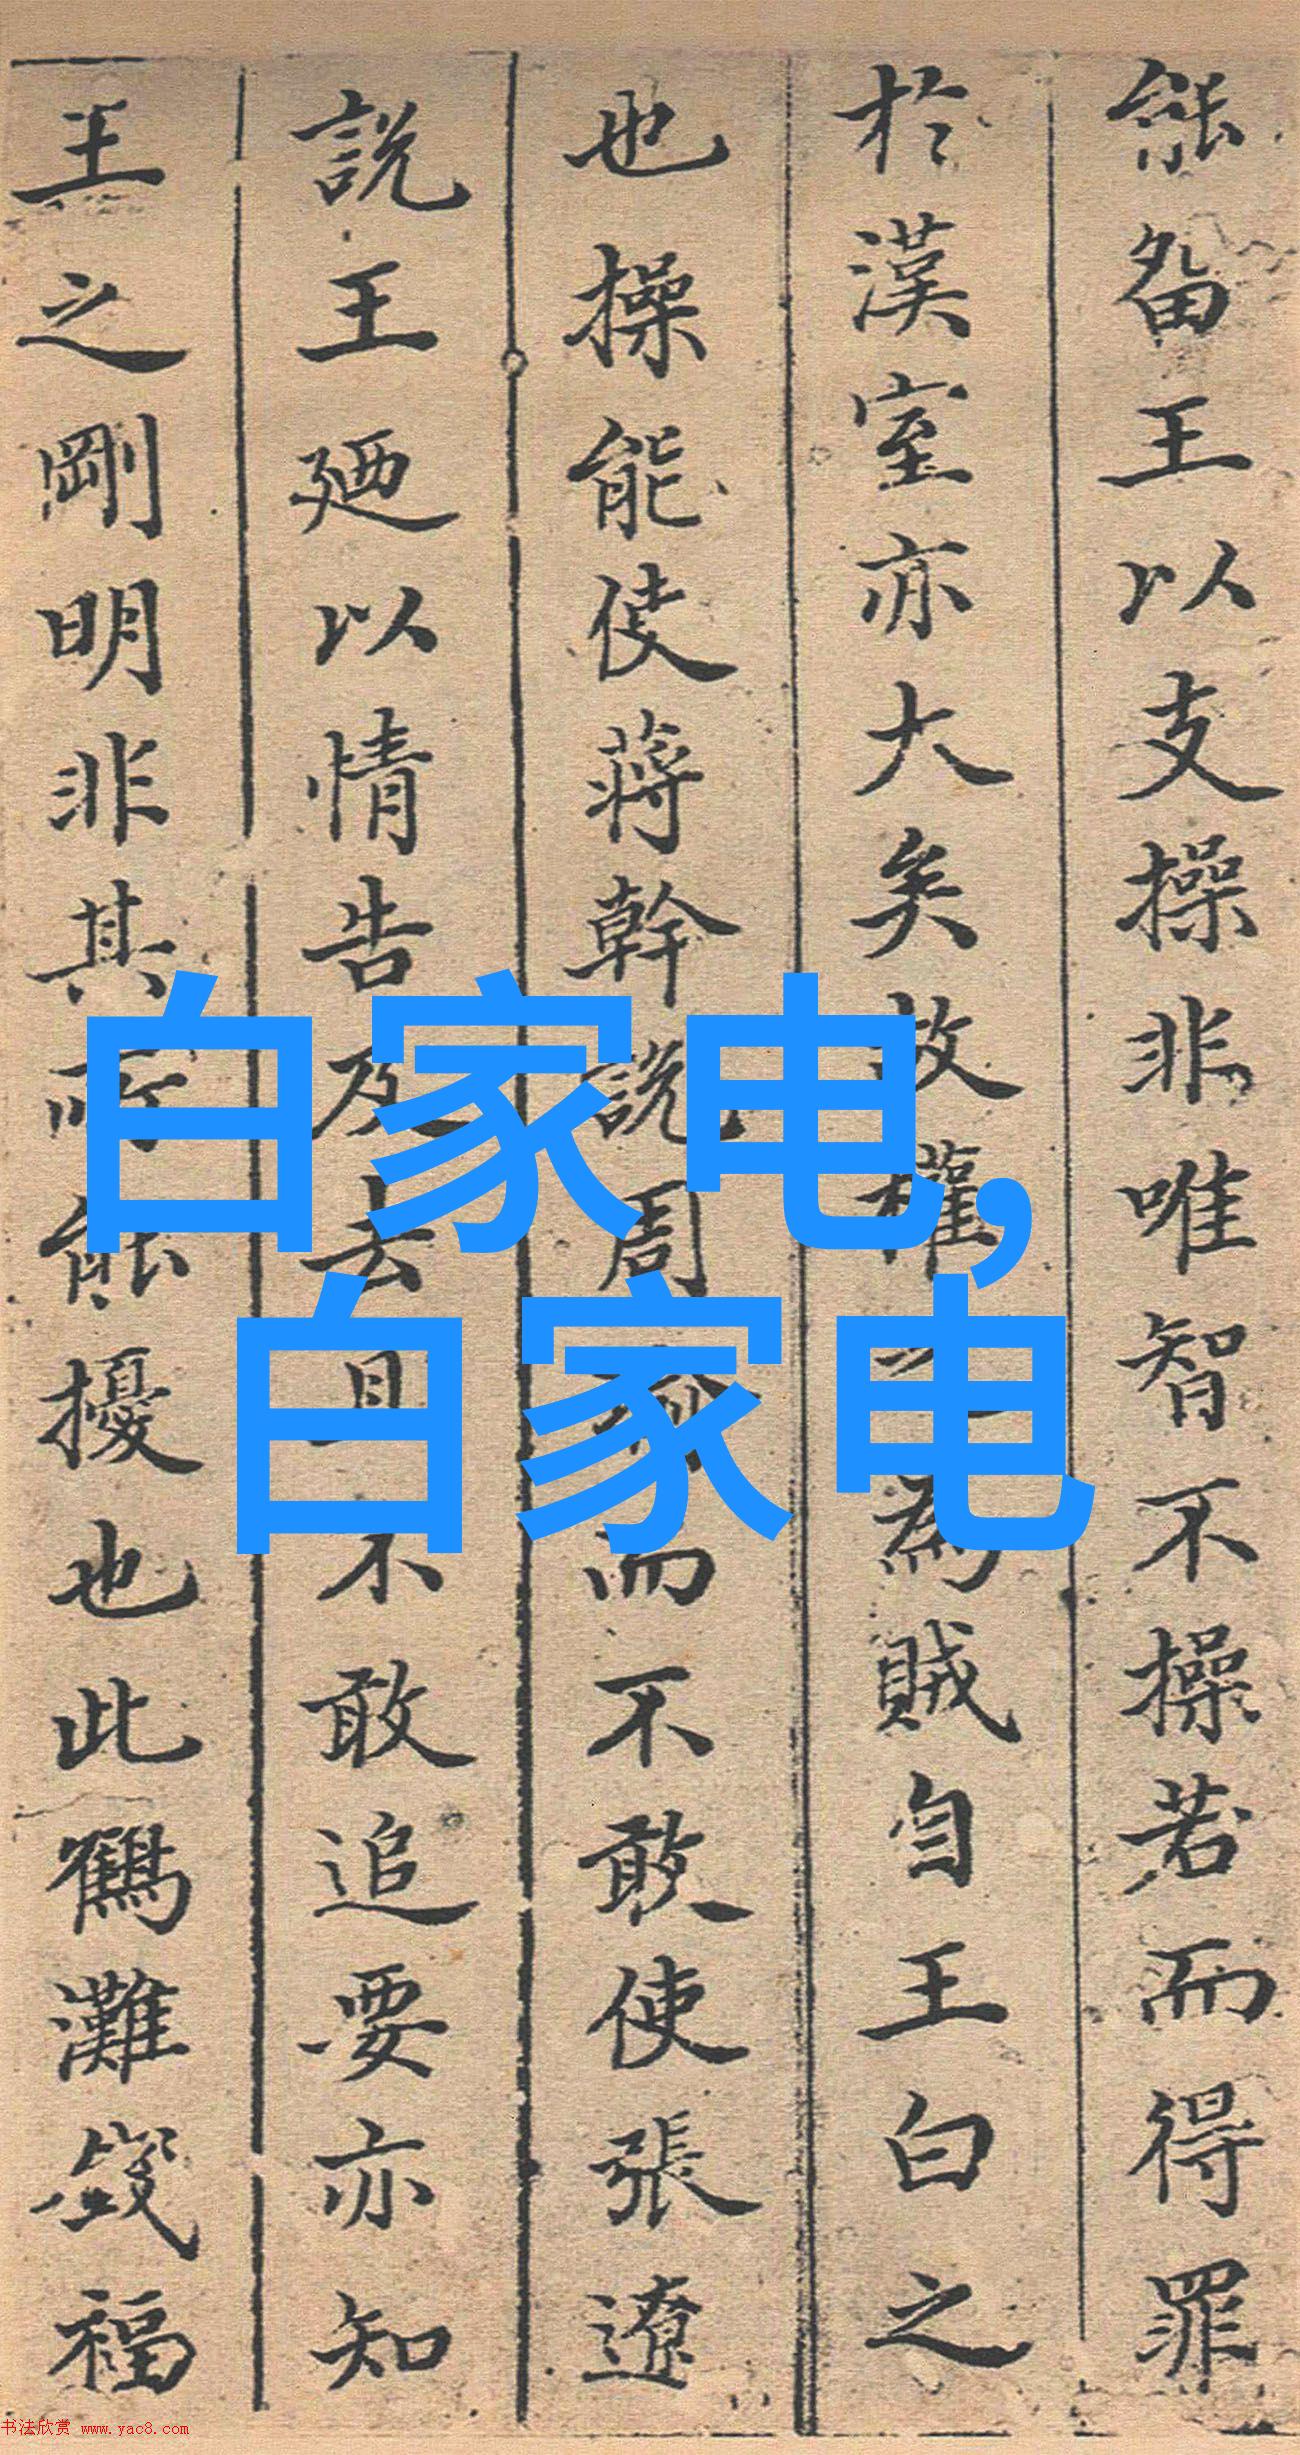 能留王以支操非唯智不操若而得罪
於漢室亦大矣故權為賊自王白之
也操能使蔣幹說周而不敢使張遼
說王廼以情告及去不敢追要亦知
王之剛明非其所能擾也此鶴灘錢福
白家电,
白家电
书法欣赏 www.yac8.com